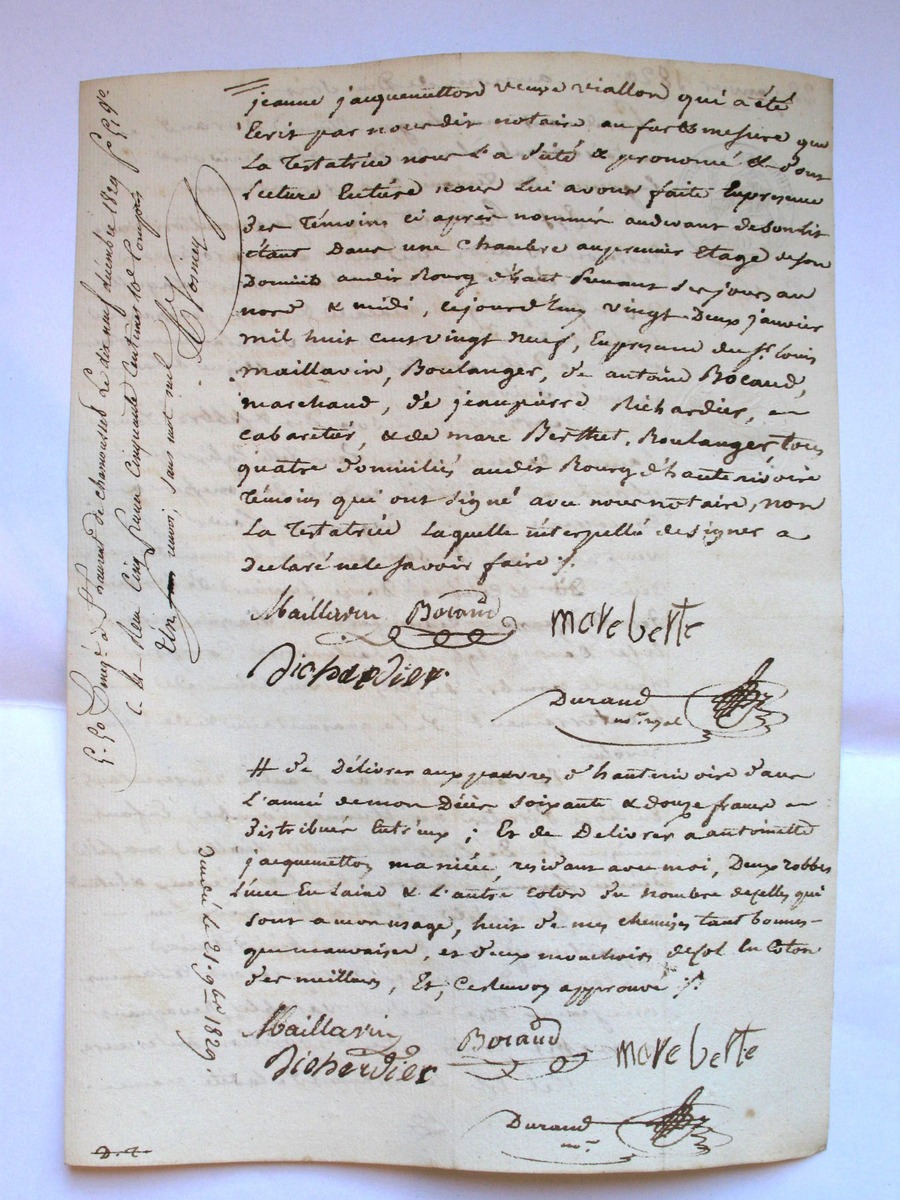 jeanne jacquemetton veuve viallon qui a été
Ecrit par nous dit notaire au fur & mesure que
La Testatrice nous l'a dicté & prononcé & dont
Lecture Entiere nous Lui avons faite En presence
des Témoins ci après nommés audevant de son lit
étant Dans une chambre au premier Etage de son
Domicile audit Bourg d'haut Prenant ses jours au
nord & midi, cejourd'huy vingt Deux janvier
mil huit cent vingt neuf, En presence du Sr. Louis
maillavin, Boulanger, de antoine Bocaud,
marchand, de jean pierre Richardier,
cabaretier, & de marc Berthet, Boulanger, tous
quatre domiciliés audit Bourg d'hauterivoire
Témoins qui ont signé avec nous notaire, non
La Testatrice Laquelle interpellée de signer a
Declaré ne le savoir faire ./.
Maillavin Bocaud marc berte
Richardier
Durand
nore. royal
# de Délivrer aux pauvres d'hauterivoire dans
L'année de mon Décès soixante & douze francs
distribués Entr'eux ; Et de Delivrer a antoinette
jacquemetton ma nièce, residant avec moi, Deux robbes
L'une En Laine & L'autre coton du nombre de celles qui
sont a mon usage, huit de mes chemises tant bonnes
que mauvaises, et deux mouchoirs de col En coton
des meilleurs, Et, ce renvoy approuvé ./.
Maillavin Bocaud marc berte
Richardier
Durand
nore.
D. T.
Enregé. à St Laurent de chamousset Le dix neuf décembre 1829
Reçu Cinq francs Cinquante Centimes 10e Compris
Un renvoi, sans mot nul
Decedé le 21. 9bre 1829.